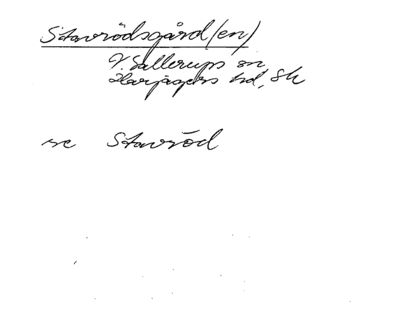 Stavrödsgård(en)
V. Sallerups sn
Harjagers hd, Sk
se Stavröd